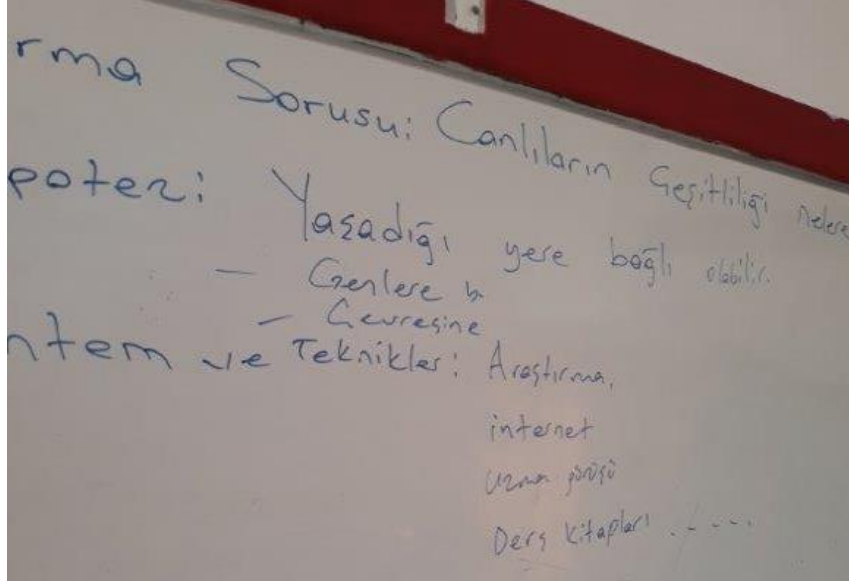 rma Sorusu: Canlıların Çeşitliliği nelere
potez: Yaşadığı yere bağlı olabilir.
- Genlere b
- Çevresine
ntem ve Teknikler: Araştırma,
internet
uzman görüşü
Ders kitapları .....